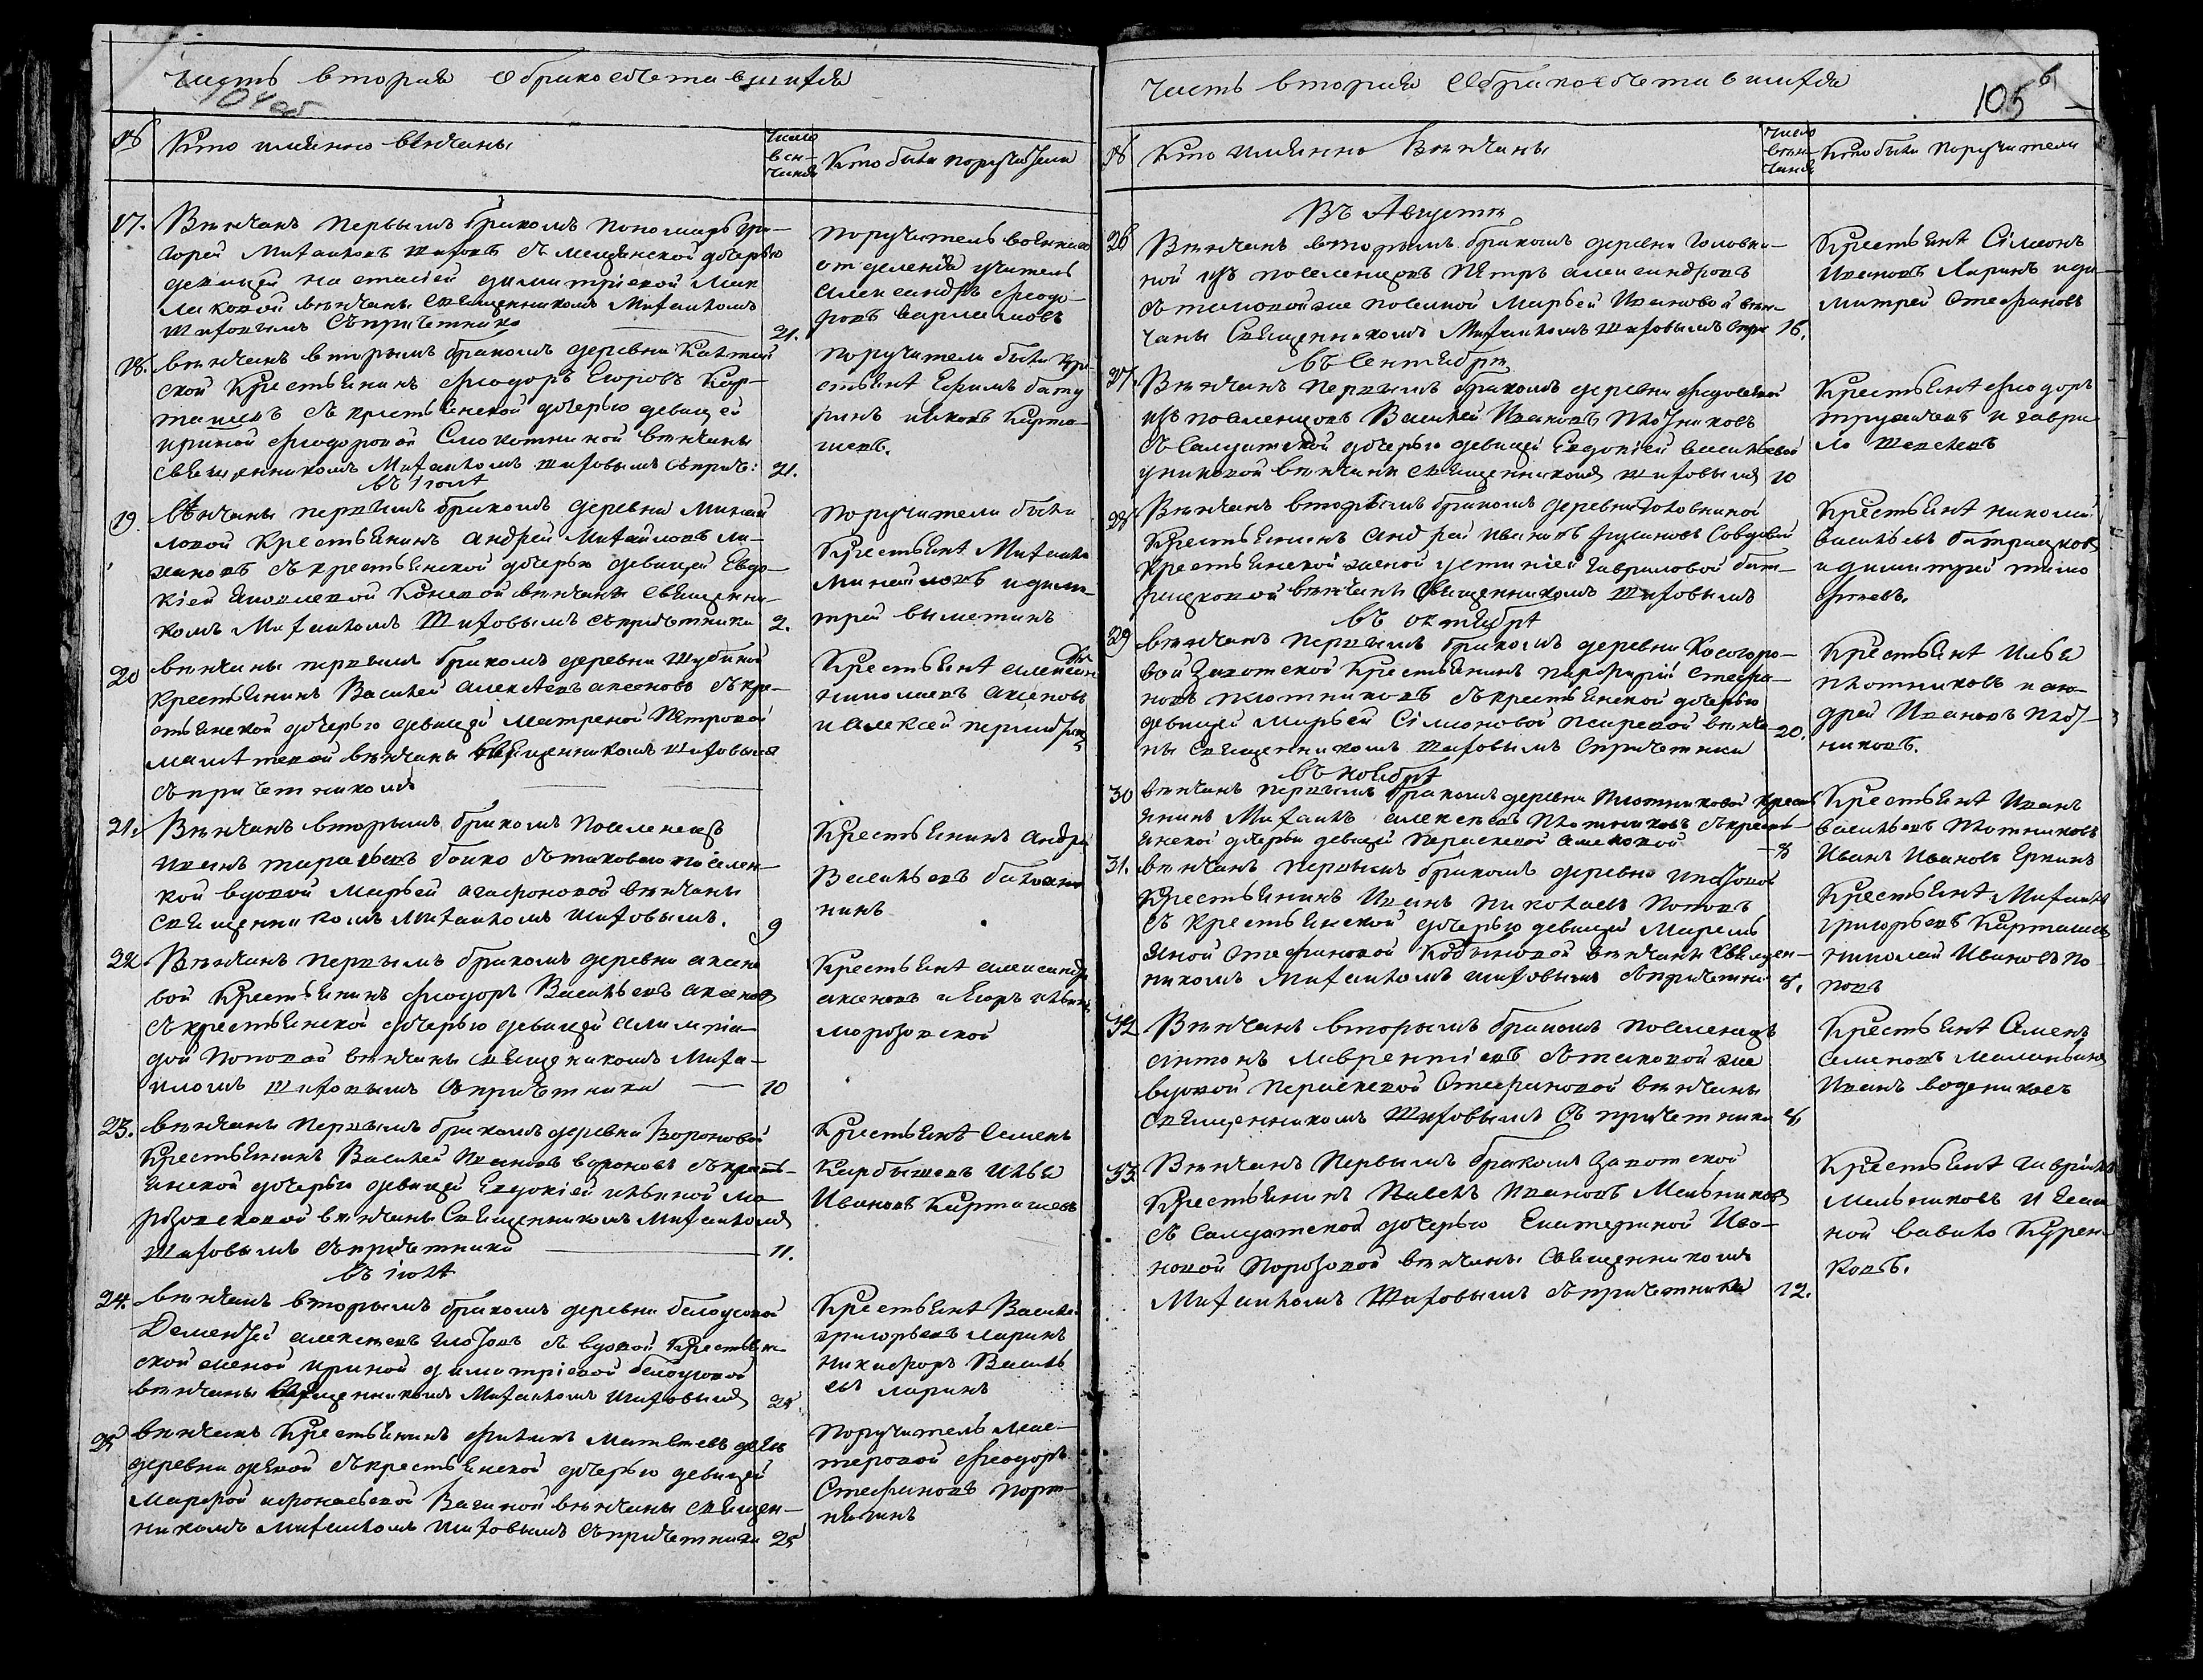 часть вторая о бракосочетавшихся
104 об
№
Кто имянно венчаны
Число венчания
Кто были поручатели
17. Венчанъ первымъ бракомъ пономарь Гри-
горей Михаиловъ Шиховъ съ мещанской дочерью
девицей Настасией Димитриевой
венчаны Священникомъ Михаиломъ
Шиховымъ съ причетники 21.
поручитель военнаго
отделения учитель
Александръ Феодо-
ровъ
18. венчанъ вторымъ бракомъ деревни
ской Крестьянинъ Феодоръ Егоровъ Кар-
ташевъ съ крестьянской дочерью девицей
Ириной Феодоровой Смокотниной венчаны
Священникомъ Михаиломъ Шиховымъ съ прич: 21.
поручатели были кре-
стьяне Ефимъ Бату
ринъ Карта-
шевъ.
въ Июне
19. Венчаны первымъ бракомъ деревни Минай
ловой Крестьянинъ Андрей Михайловъ
съ крестьянской дочерью девицей Евдо-
кией Яковлевой Коневой венчаны Священни-
комъ Михаиломъ Шиховымъ съ причетники 2.
поручатели были
Крестьяне Михаило
Минайловъ и Дими-
трей
20 венчаны первымъ бракомъ деревни Шубиной
Крестьянинъ Василей Алексеевъ Аксеновъ съ кре-
стьянской дочерью девицей Матреной Петровой
венчаны Священникомъ Шиховымъ
съ причетникомъ
Крестьяне
Николаевъ Аксеновъ
и Алексей
21. Венчанъ вторымъ бракомъ поселенецъ
Иванъ Тарасьевъ Бойко съ таковою поселен-
кой вдовой Марьей Агафоновой венчаны
Священникомъ Михаиломъ Шиховымъ. 9
Крестьянинъ Андрей
Васильевъ
22. Венчанъ первымъ бракомъ деревни Аксено
вой Крестьянинъ Феодоръ Васильевъ Аксеновъ
съ крестьянской дочерью девицей
Поповой венчаны Священикомъ Миха-
иломъ Шиховымъ съ причетники 10
Крестьяне Александръ
Аксеновъ и Егоръ Ильинъ
Морозовской
23. венчанъ первымъ бракомъ деревни Вороновой
Крестьянинъ Василей Ивановъ Вороновъ съ кресть-
янской дочерью девицей Евдокией Ильиной Мо-
розовсковой венчаны Священникомъ Михаиломъ
Шиховымъ съ причетники 11.
Крестьяне Семенъ
Карбышевъ Илья
Ивановъ Карташевъ
въ Июле
24. венчанъ вторымъ бракомъ деревни Белоусовой
Дементей Алексеевъ съ вдовой Крестьян-
ской женой Ириной Димитриевой Белоусовой
венчаны Священникомъ Михаиломъ Шиховымъ 24.
Крестьяне Василей
Григорьевъ Ларинъ
Никифоръ Василь
евъ Ларинъ
25 венчанъ Крестьянинъ Матвеевъ
деревни съ крестьянской дочерью девицей
Марфой Афонасьевой Вагиной венчаны Священ-
никомъ Михаиломъ Шиховымъ съ причетники 25
поручитель
Феодоръ
Стефановъ Порт-
нягинъ
часть вторая о бракосочетавшихся
105
№
Кто имянно венчаны
Число венчания
Кто были поручители
Въ Августе
26 Венчанъ вторымъ бракомъ деревни Головни-
ной изъ поселенцовъ Петръ Александровъ
съ таковой же поселкой Марьей Ивановой вен-
чаны Священникомъ Михаиломъ Шиховымъ с при 16.
Крестьяне Симеонъ
Ивановъ Ларинъ и Ди-
митрей Стефановъ
въ Сентябре
27. Венчанъ первымъ бракомъ деревни
изъ поселенцовъ Василей Ивановъ
съ салдатской дочерью девицей Евдокией Васильевой
венчаны священникомъ Шиховымъ 10
Крестьяне Феодоръ
и Гаври
ло
28 Венчанъ вторымъ бракомъ деревни Головниной
Крестьянинъ Андрей Ивановъ со вдовой
Крестьянской женой Устинией Гавриловой
венчаны Священникомъ Шиховымъ
Крестьяне Николай
Васильевъ
и Димитрей Тимо
феевъ.
въ октябре
29 венчанъ первымъ бракомъ деревни Косогоро-
вой Крестьянинъ Парфирий Стефа-
новъ Плотниковъ съ крестьянской дочерью
девицей Марьей Симионовой венча-
ны Священникомъ Шиховымъ с причетники 20.
Крестьяне Илья
Плотниковъ и Ан-
дрей Ивановъ Плот-
никовъ.
въ ноябре
30 венчанъ первымъ бракомъ деревни Плотниковой кресть
янинъ Михаилъ Алексеевъ Плотниковъ съ кресть-
янской дочерью девицей Параскевой 8
Крестьяне Иванъ
Васильевъ Плотниковъ
Иванъ Ивановъ Еркинъ
31. венчанъ первымъ бракомъ деревни
Крестьянинъ Иванъ Николаевъ Поповъ
съ крестьянской дочерью девицей Марем-
яной Стефановой венчаны Священ-
никомъ Михаиломъ Шиховымъ съ причетники 8.
Крестьяне Михаилъ
Григорьевъ Карташевъ
Николай Ивановъ По-
повъ
32 Венчанъ вторымъ бракомъ поселенецъ
Антонъ Лаврентиевъ съ таковой же
вдовой Параскевой Стефановой венчаны
Священникомъ Шиховымъ съ причетники 8
Крестьяне Семенъ
Семеновъ
Иванъ Водениковъ
33. Венчанъ первымъ бракомъ
Крестьянинъ Павелъ Ивановъ Мельниковъ
съ Салдатской дочерью Екатериной Ива-
новой венчаны Священникомъ
Михаиломъ Шиховымъ съ причетники 12.
Крестьяне Гаврило
Мельниковъ и
Вавило Курен-
ковъ.